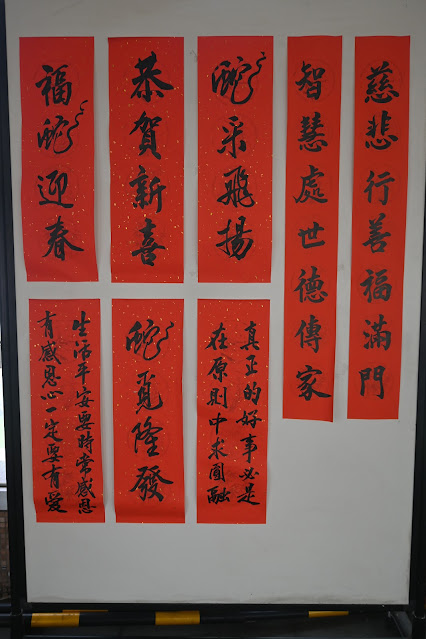 慈悲行善福滿門
智慧處世德傳家
蛇采飛揚
恭賀新喜
福蛇迎春
真正的好事必是
在原則中求圓融
蛇隆發
生活平安要時常感恩
有感恩心一定要有愛